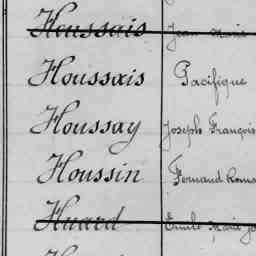 Houssais Jean Marie
Houssais Pacifique
Houssay Joseph François
Houssin Fernand
Huard Emile Marie